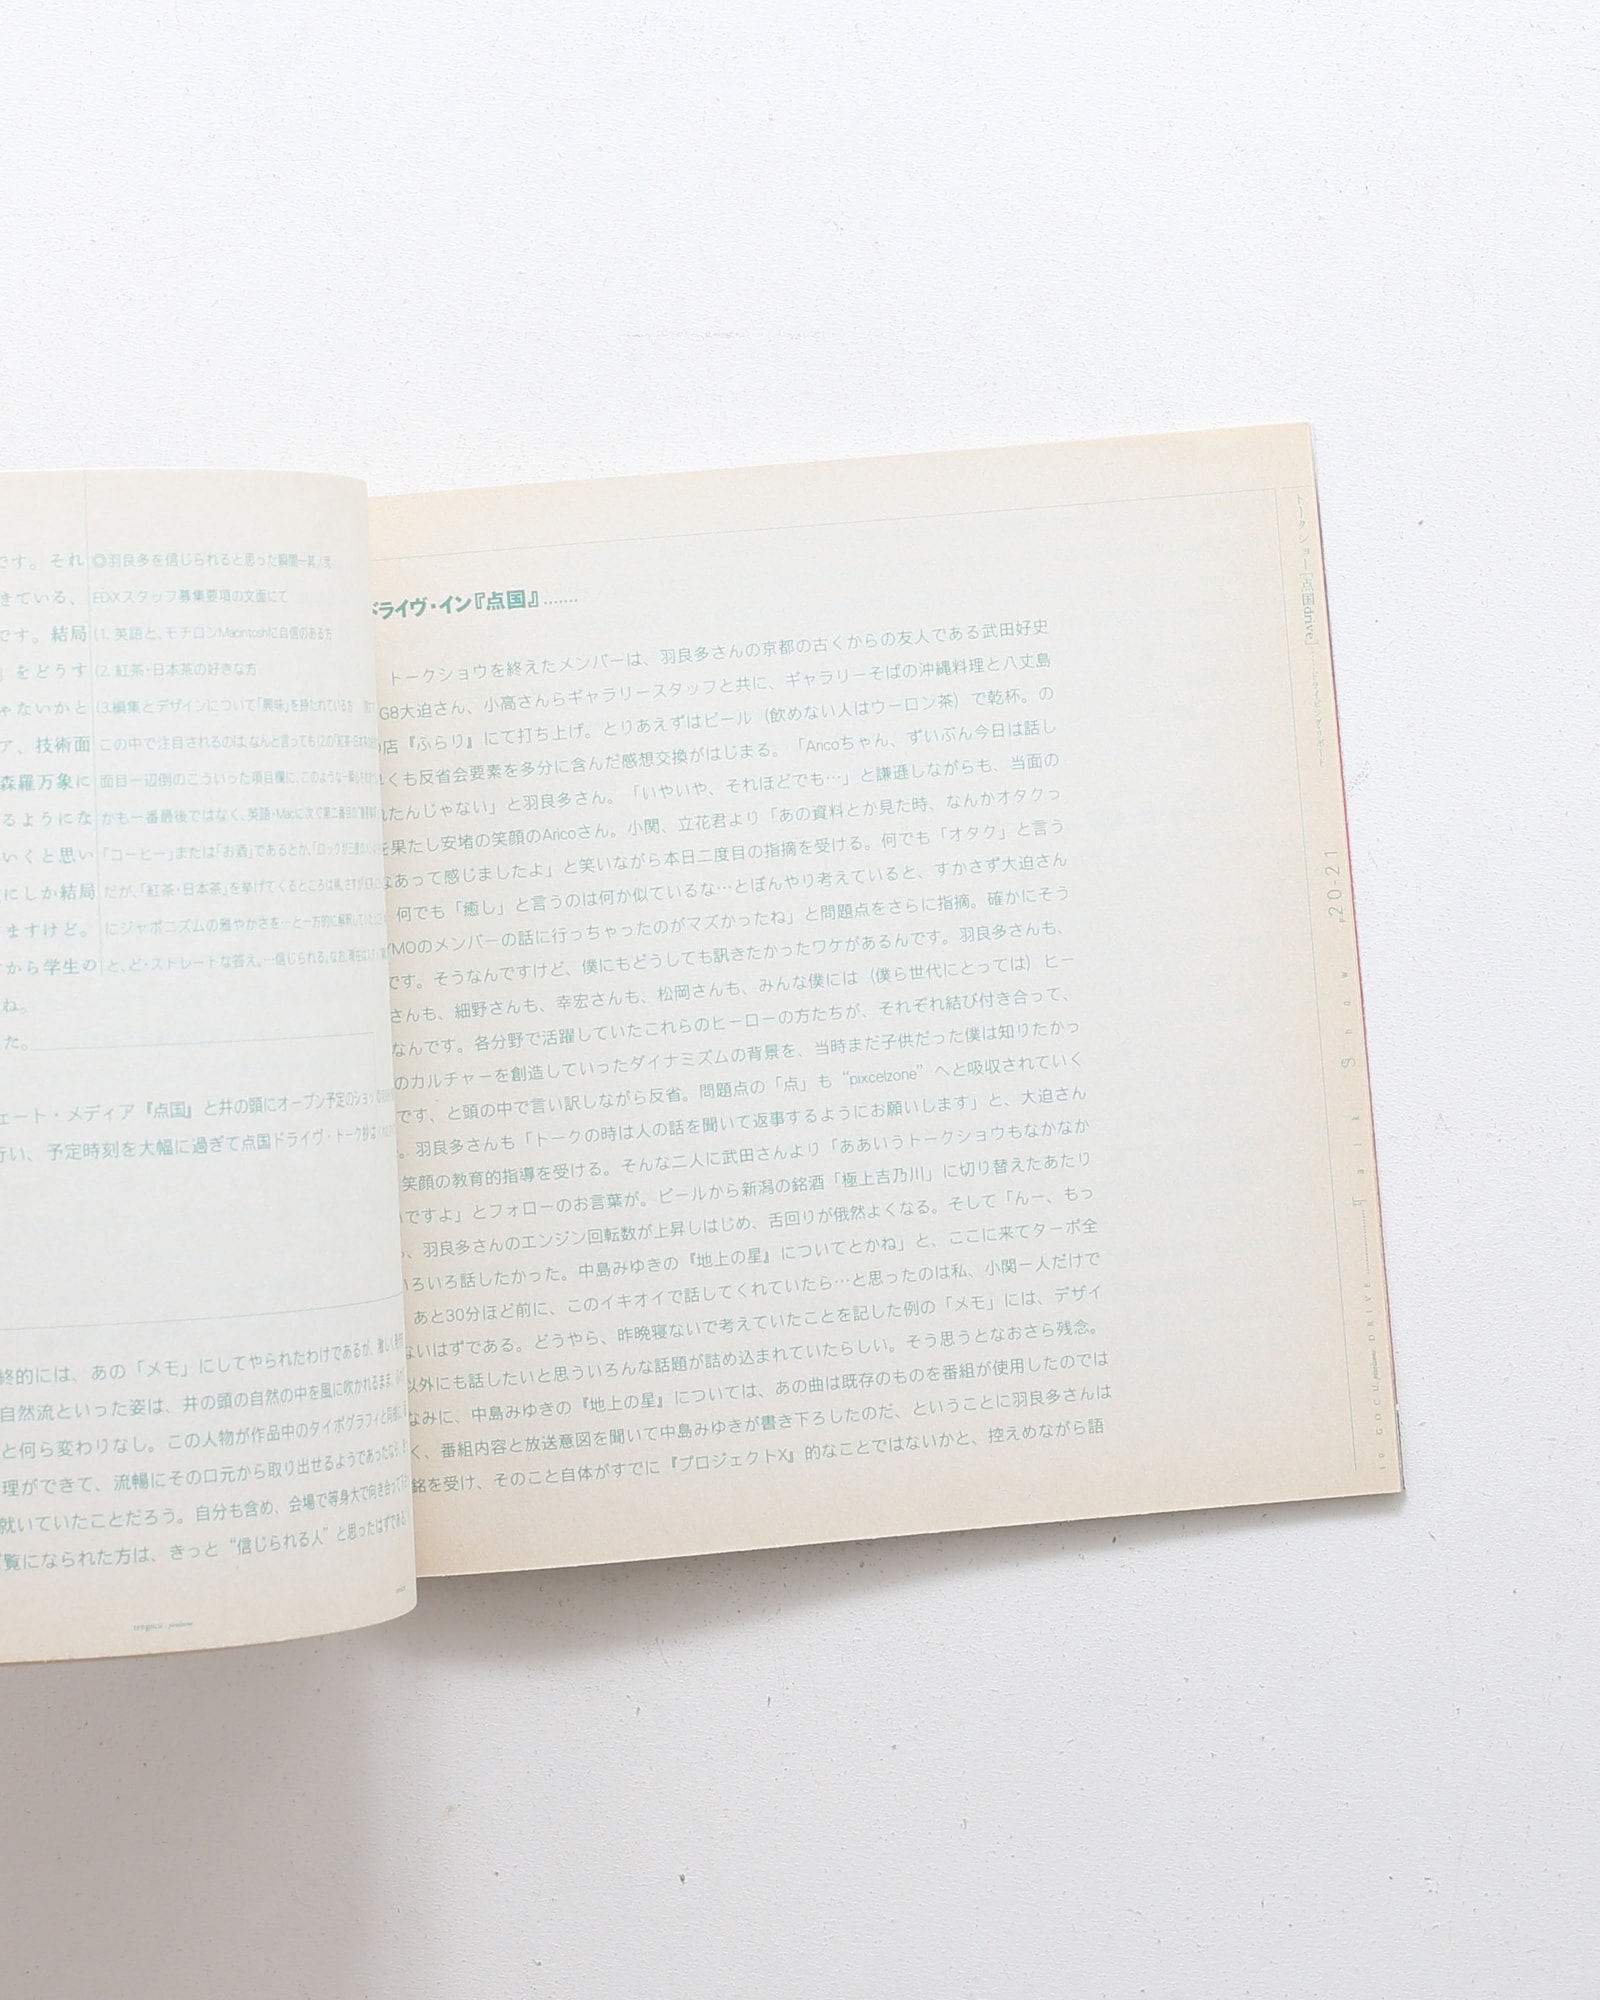 です。それ
きている、
です。結局
』をどうす
ゃないかと
ア、技術面
森羅万象に
るようにな
いくと思い
にしか結局
ますけど。
から学生の
ね。
た。
◎羽良多を信じられると思った瞬間
EDiXスタッフ募集要項の文面にて
(1. 英語と、モチロンMacintoshに自信のある方
(2. 紅茶・日本茶の好きな方
(3.編集とデザインについて「興味」を持たれている方
この中で注目されるのは、なんと言っても(2.の「紅茶・日本茶
面目一辺倒のこういった項目欄に、このような一
かも一番最後ではなく、英語・Macに次ぐ第二番目の
「コーヒー」または「お酒」であるとか、「ロックが
だが、「紅茶・日本茶」を挙げてくるところは
にジャポニズムの雅やかさを…と一方的に解釈して
と、ど・ストレートな答え。…信じられる。なお、現在は
ェート・メディア『点国』と井の頭にオープン予定のショッ
行い、予定時刻を大幅に過ぎて点国ドライヴ・トーク
終的には、あの「メモ」にしてやられたわけであるが、
自然流といった姿は、井の頭の自然の中を風に吹かれるまま、
と何ら変わりなし。この人物が作品中のタイポグラフィと同様に、
理ができて、流暢にその口元から取り出せるようであったなら
就いていたことだろう。自分も含め、会場で等身大で向き合って
覧になられた方は、きっと“信じられる人”と思ったはずである
ドライヴ・イン『点国』.......
トークショウを終えたメンバーは、羽良多さんの京都の古くからの友人である武田好史
GB大迫さん、小高さんらギャラリースタッフと共に、ギャラリーそばの沖縄料理と八丈島
の店『ふらり』にて打ち上げ。とりあえずはビール（飲めない人はウーロン茶）で乾杯。の
くも反省会要素を多分に含んだ感想交換がはじまる。「Aricoちゃん、ずいぶん今日は話し
れたんじゃない」と羽良多さん。「いやいや、それほどでも…」と謙遜しながらも、当面の
を果たし安堵の笑顔のAricoさん。小関、立花君より「あの資料とか見た時、なんかオタクっ
なあって感じましたよ」と笑いながら本日二度目の指摘を受ける。何でも「オタク」と言う
何でも「癒し」と言うのは何か似ているな…とぼんやり考えていると、すかさず大迫さん
YMOのメンバーの話に行っちゃったのがマズかったね」と問題点をさらに指摘。確かにそう
です。そうなんですけど、僕にもどうしても訊きたかったワケがあるんです。羽良多さんも、
さんも、細野さんも、幸宏さんも、松岡さんも、みんな僕には（僕ら世代にとっては）ヒー
なんです。各分野で活躍していたこれらのヒーローの方たちが、それぞれ結び付き合って、
のカルチャーを創造していったダイナミズムの背景を、当時まだ子供だった僕は知りたかっ
です、と頭の中で言い訳しながら反省。問題点の「点」も“pixcelzone”へと吸収されていく
。羽良多さんも「トークの時は人の話を聞いて返事するようにお願いします」と、大迫さん
笑顔の教育的指導を受ける。そんな二人に武田さんより「ああいうトークショウもなかなか
いですよ」とフォローのお言葉が。ビールから新潟の銘酒「極上吉乃川」に切り替えたあたり
、羽良多さんのエンジン回転数が上昇しはじめ、舌回りが俄然よくなる。そして「んー、もっ
いろいろ話したかった。中島みゆきの『地上の星』についてとかね」と、ここに来てターボ全
あと30分ほど前に、このイキオイで話してくれていたら…と思ったのは私、小関一人だけで
ないはずである。どうやら、昨晩寝ないで考えていたことを記した例の「メモ」には、デザイ
以外にも話したいと思ういろんな話題が詰め込まれていたらしい。そう思うとなおさら残念。
なみに、中島みゆきの『地上の星』については、あの曲は既存のものを番組が使用したのでは
く、番組内容と放送意図を聞いて中島みゆきが書き下ろしたのだ、ということに羽良多さんは
銘を受け、そのこと自体がすでに『プロジェクトX』的なことではないかと、控えめながら語
トークショー[点国drive]......ドライビング・リポート
20-21
Talk Show
DRIVE